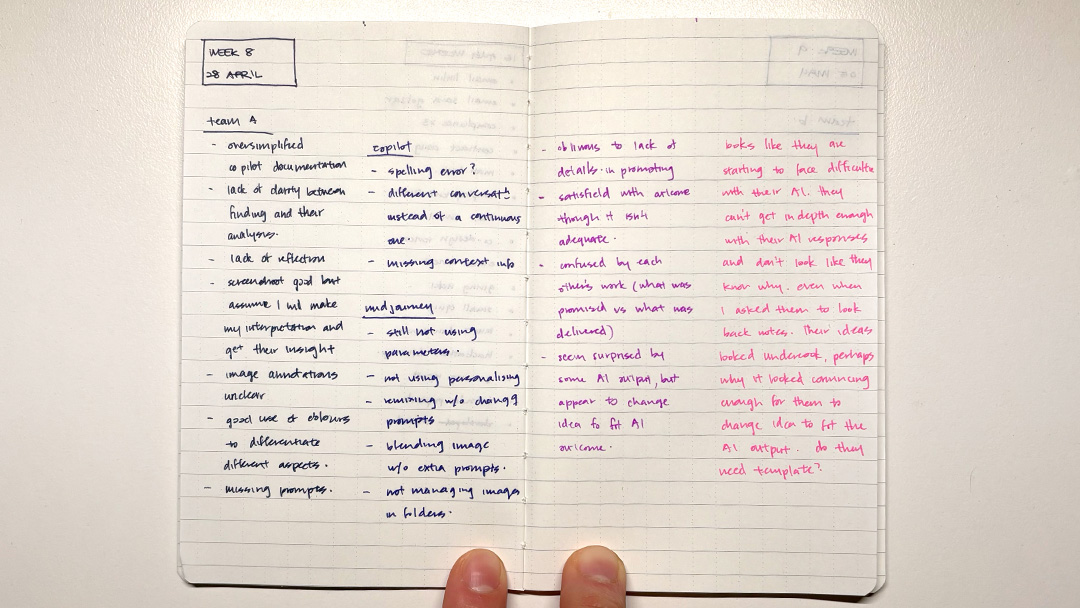 WEEK 8
28 APRIL
team A
- oversimplified
copilot documentation
- lack of clarity between
finding and their
analysis.
- lack of reflection
- screenshot good but
assume I will make
my interpretation and
get their insight
- image annotations
unclear
- good use of colours
to differentiate
different aspects.
- missing prompts.
copilot
- spelling error?
- different conversatn
instead of a continuous
one.
- missing context info
midjourney
- still not using
parameters.
- not using personalising
- remixing w/o changg
prompts
- blending image
w/o extra prompts.
- not managing images
in folders.
- oblivious to lack of
details in prompting
- satisfield with
though it isn't
adequate.
- confused by each
other's work (what was
promised vs what was
delivered)
- seem surprised by
some AI output, but
appear to change
idea to fit AI
outcome.
looks like they are
starting to face difficulte
with their AI. they
can't get in depth enough
with their AI responses
and don't look like they
know why. even when
I asked them to look
back notes. Their ideas
looked undercook, perhaps
why it looked convincing
enough for them to
change idea to fit the
AI output. do they
need template?